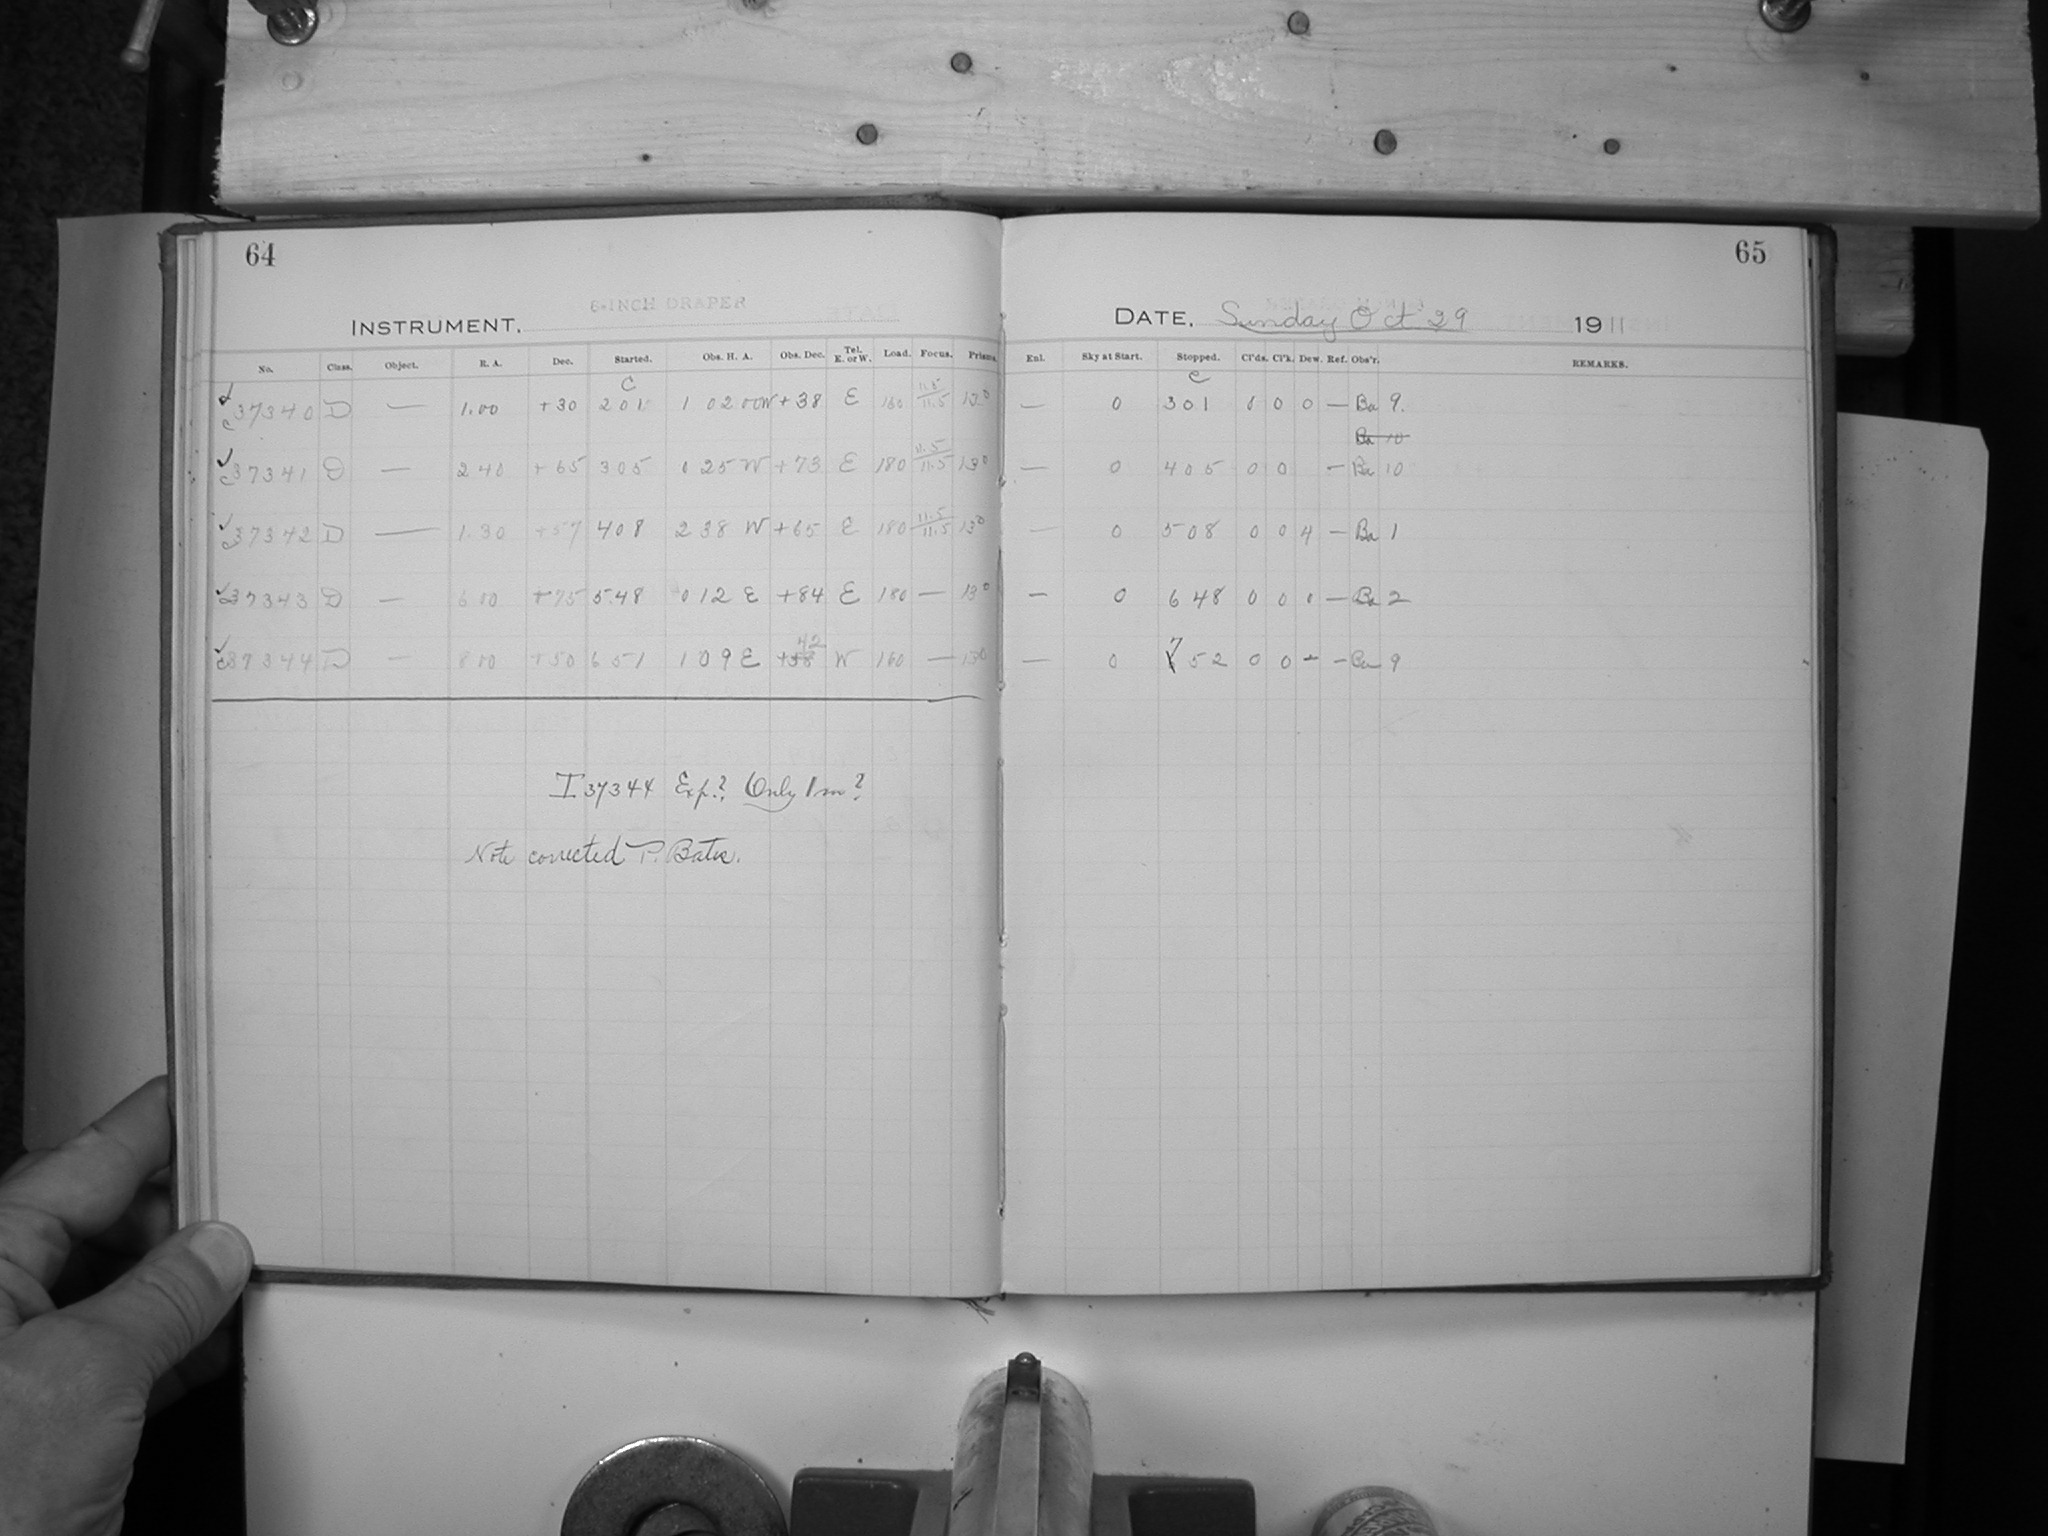 64
65
6-INCH DRAPER
INSTRUMENT.
DATE, Sunday Oct 29 1911
No. Class. Object. R. A. Dec. Started. Obs. H. A. Obs. Dec. Tel. E. or W. Load. Focus. Prisms. Enl. Sky at Start. Stopped. Cl'ds. Cl'k. Dew. Ref. Obs'r. REMARKS.
C C
c 37340 D — 1.00 +30 201 1 02 00W +38 E 160 11.5/11.5 13° — 0 301 0 0 0 — Ba 9.
Ba 10
c 37341 D — 2 40 +65 305 0 25 W +73 E 180 11.5/11.5 13° — 0 405 0 0 — Ba 10
c 37342 D — 1.30 +57 408 2 38 W +65 E 180 11.5/11.5 13° — 0 508 0 0 4 — Ba 1
37343 D — 6 00 +75 5.48 0 12 E +84 E 180 — 13° — 0 6 48 0 0 0 — Ba 2
42
7
c 37344 D — 8 00 +50 6 51 1 09 E +58 W 160 — 13° — 0 52 0 0 — — 9
I 37344 Exp.? Only 1m?
Note corrected P. Bates.